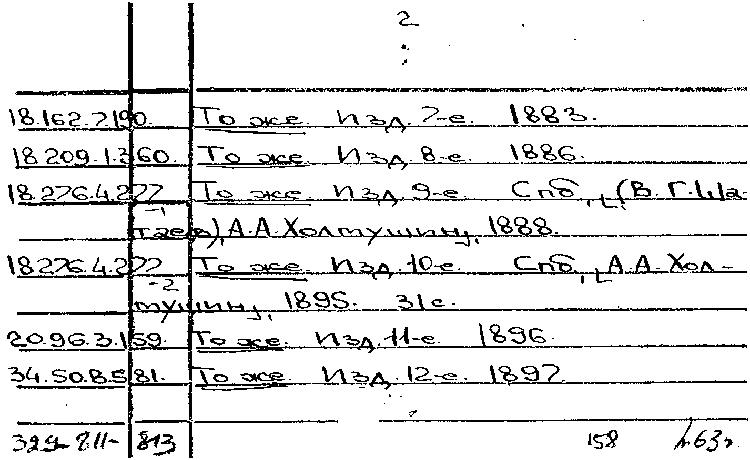 2
18.162.7.190. То же. Изд. 7-е. 1883.
18.209.1.360. То же. Изд. 8-е. 1886.
18.276.4.277 То же. Изд. 9-е. Спб., (В. Г.
-1
А. А. Холмушин, 1888.
18.276.4.277 То же. Изд. 10-е. Спб., А. А. Хол-
-2
мушин, 1895. 31 с.
20.96.3.159. То же. Изд. 11-е. 1896.
34.50.8.581. То же. Изд. 12-е. 1897.
813
158 63г.